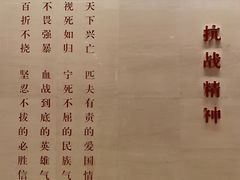 抗战精神
天下兴亡 匹夫有责的爱国情
视死如归 宁死不屈的民族气
不畏强暴 血战到底的英雄气
百折不挠 坚忍不拔的必胜信